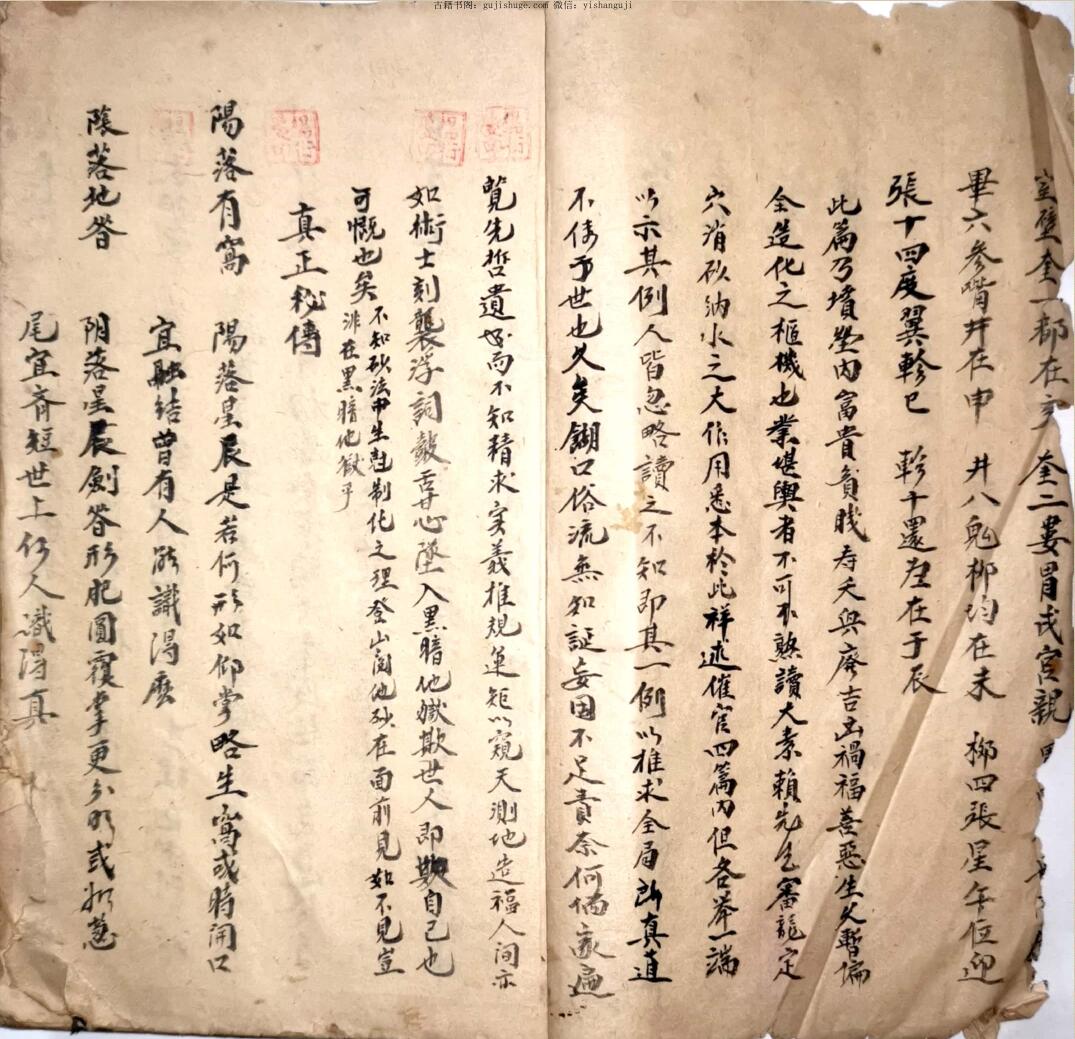 古籍书阁:gujishuge.com 微信:yishanguji
室壁奎一都在亥 奎二婁胃戌宮親
畢六參嘴井在申 井八鬼柳均在未 柳四張星午位迎
張十四度翼軫巳 軫十還在于辰
此篇乃墳塋內富貴貧賤寿夭興廢吉凶禍福善惡生久暫偏
全造化之樞機也業堪輿者不可不熟讀大素賴先生審龍定
穴消砂納水之大作用悉本於此祥述催官四篇內但各舉一端
以示其例人皆忽略讀之不知即其一例以推求全局所真道
不傳予世也久矣餬口俗流無知証妄固不足責奈何儒家遍
覽先哲遺而不知精求实義推規運矩以窺天測地造福人间亦
如術士刻襲浮詞鼓舌甘心墜入黑暗地嶽欺世人即欺自己也
可慨也矣 不知砂法中生尅制化之理登山閱地砂在面前見如不見豈
非在黑暗地獄乎
真正秘傳
陽落有窩 陽落星辰是若何形如仰掌略生窩或時开口
宜融結曾有人能識得麽
陰落地窅 阴落星辰劍脊形肥圓覆掌更分明貳
尾宜齊短世上何人識得真